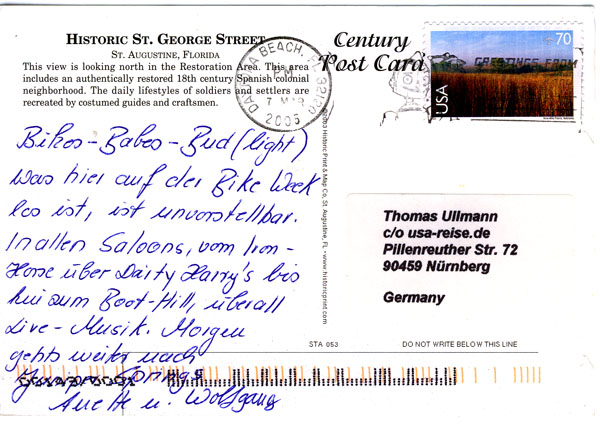 HISTORIC ST. GEORGE STREET
ST. AUGUSTINE, FLORIDA
This view is looking north in the Restoration Area. This area
includes an authentically restored 18th century Spanish colonial
neighborhood. The daily lifestyles of soldiers and settlers are
recreated by costumed guides and craftsmen.
Century
Post Card
DAYTONA BEACH,
PM
7 MAR
2005
70
USA
GREETINGS FROM
Bikes-Babes-Bud (light)
was hier auf der Bike Week
los ist, ist unvorstellbar.
In allen Saloons, vom Iron-
Horse über Dairty Harry's bis
hin zum Boot-Hill, überall
Live-Musik. Morgen
gehts weiter nach
Springs
Anette u. Wolfgang
Historic Print & Map Co, St. Augustine, FL - www.historicprint.com
Thomas Ullmann
c/o usa-reise.de
Pillenreuther Str. 72
90459 Nürnberg
Germany
STA 053
DO NOT WRITE BELOW THIS LINE